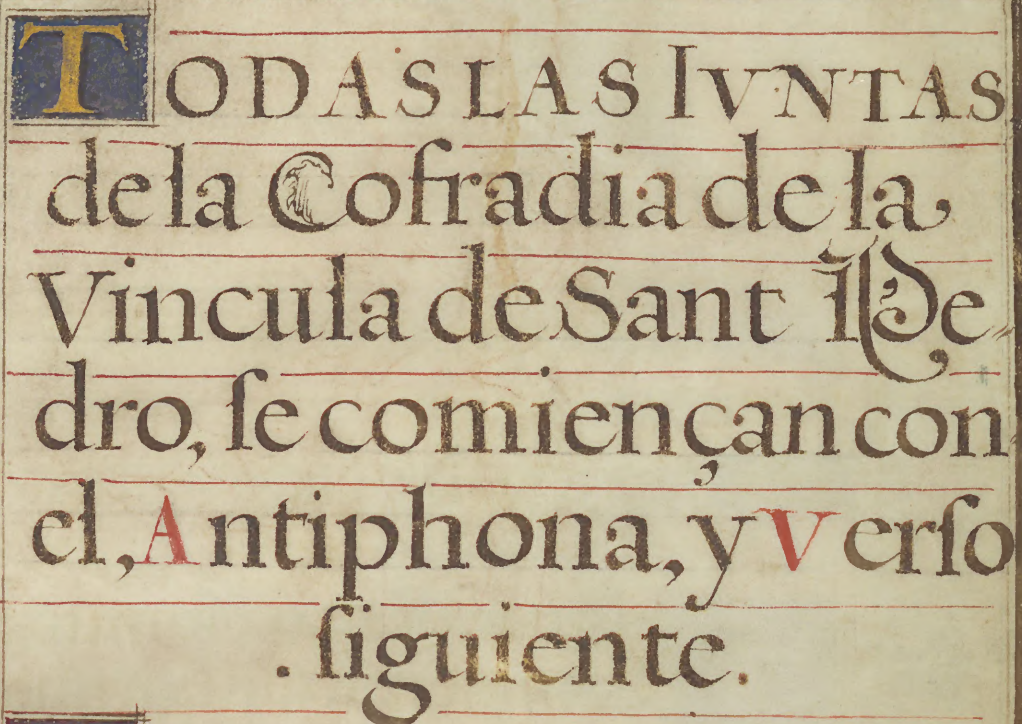 TODAS LAS IVNTAS
de la Cofradia de la,
Vincula de Sant Pe-
dro, ſe comiençan con
el, Antiphona, y Verſo
. ſiguiente.